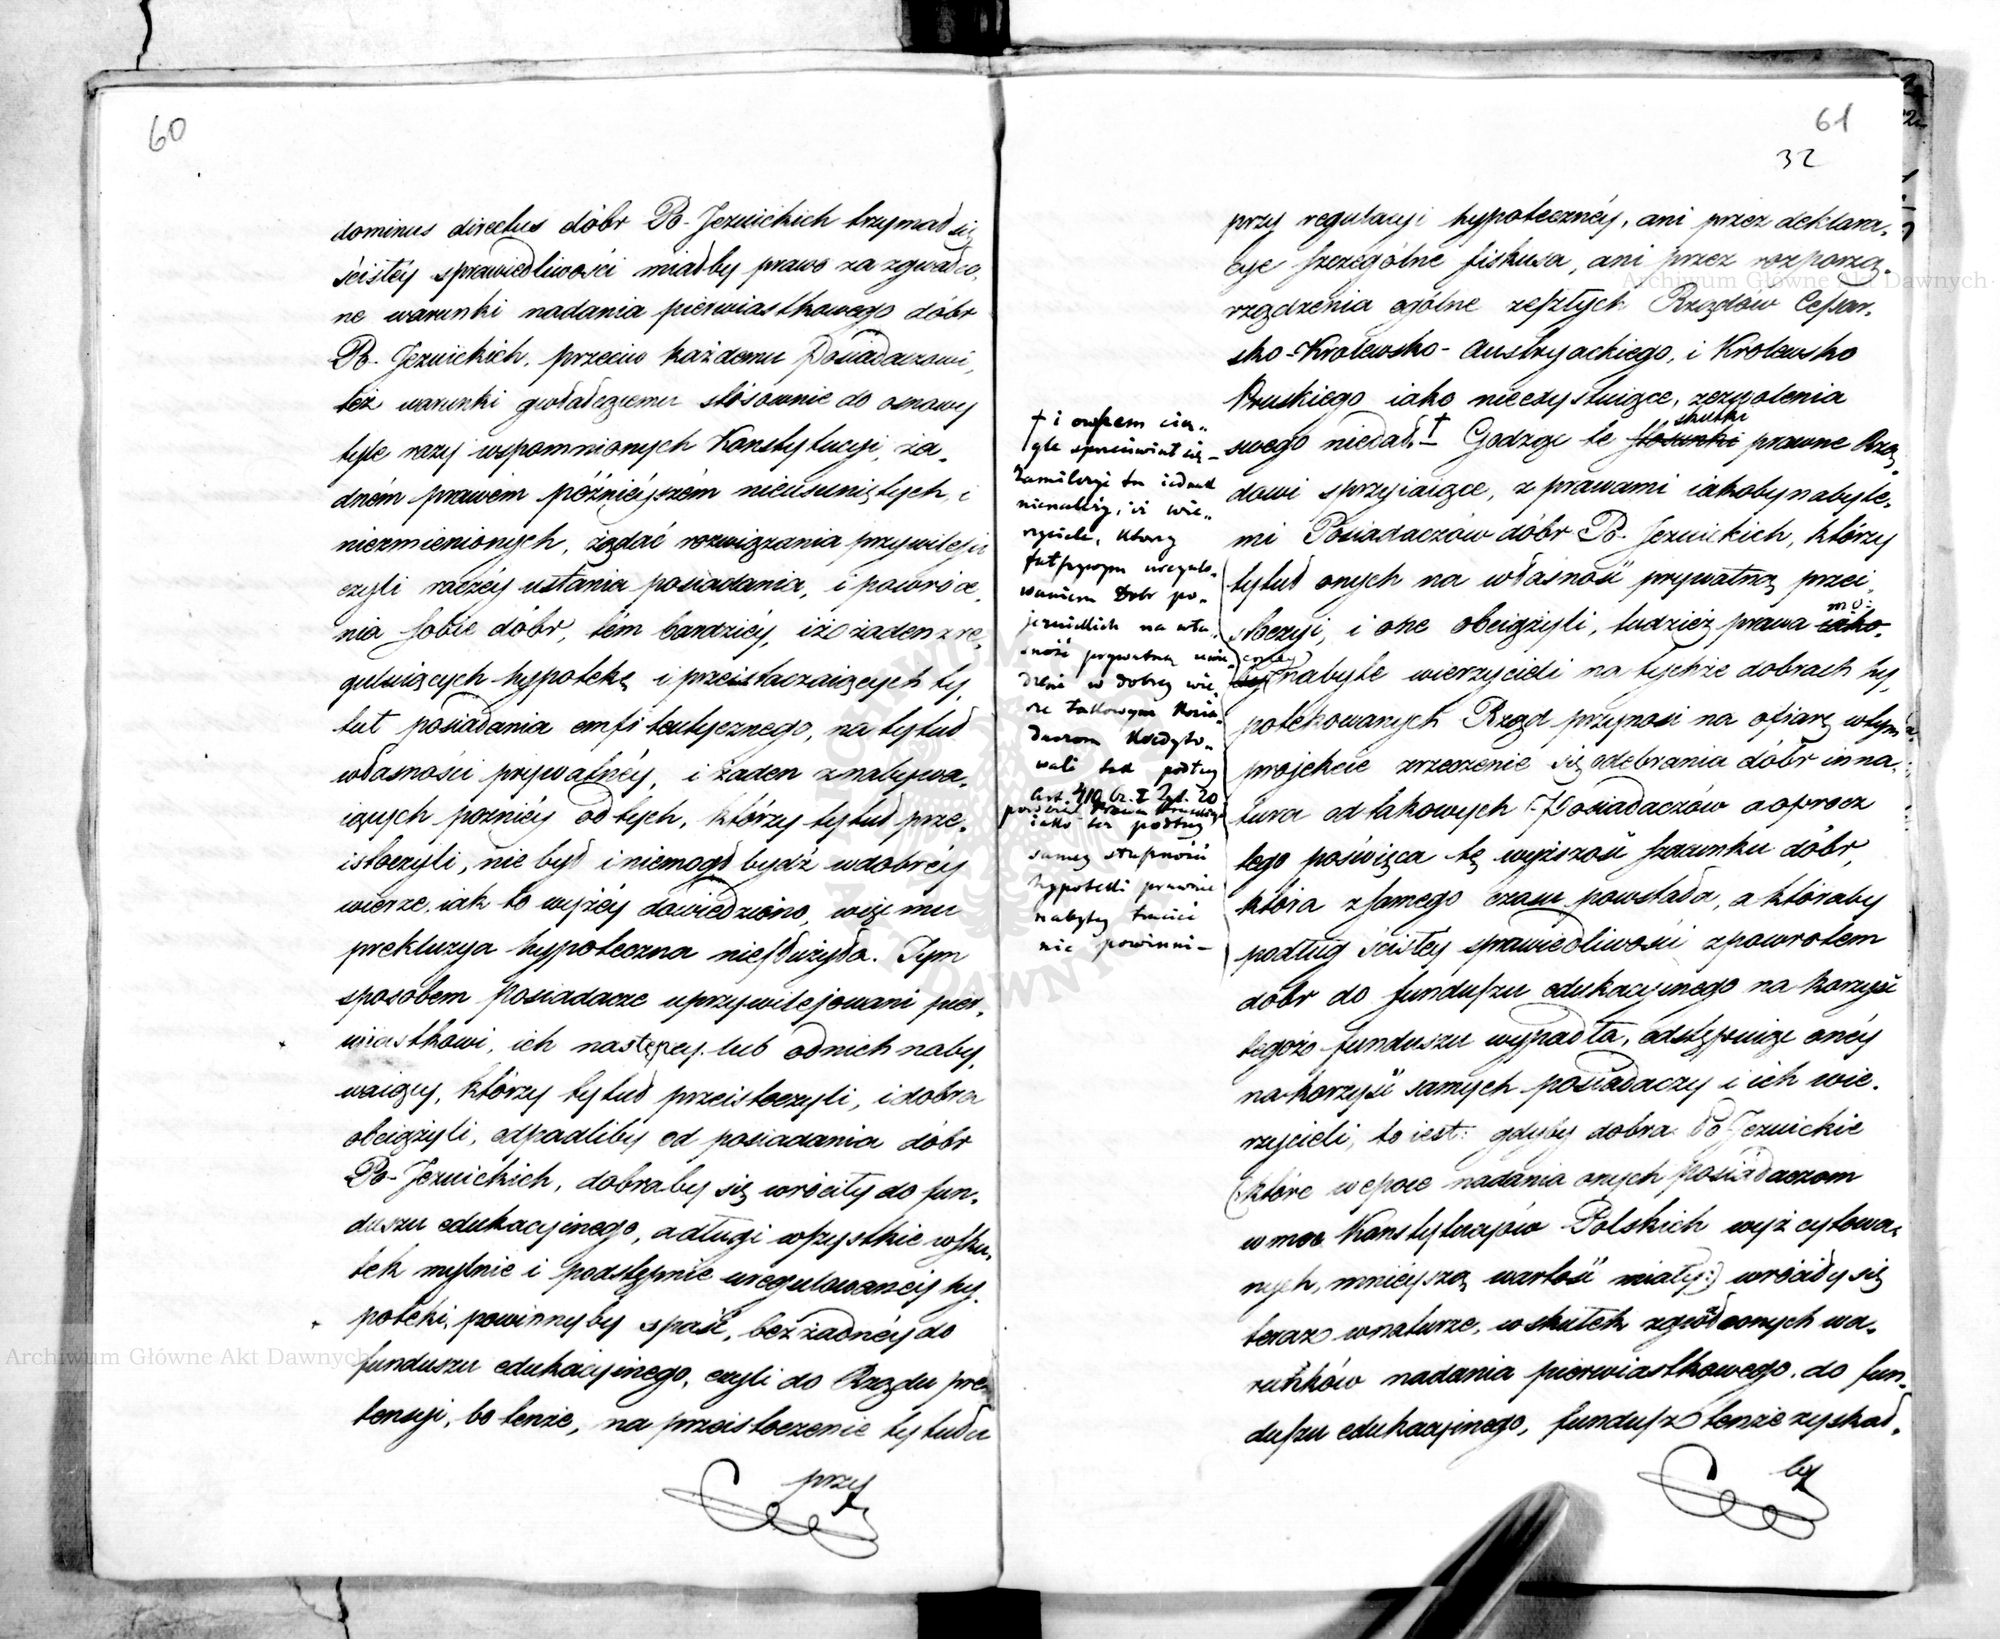 60
dominus directus dóbr Po-Jezuickich trzymał się
ścisłéy sprawiedliwości miałby prawo za zgwałco,
ne warunki nadania pierwiastkowego dóbr
Po-Jezuickich, przeciw każdemu Posiadaczowi,
też warunki gwałcącemu stósownie do osnowy
tyle razy wspomnionych Konstytucyi, ża,
dném prawem późniéyszém nieusuniętych, i
niezmienionych, żądać rozwiązania przywileju
czyli raczéy ustania posiadania, i powróce,
nia sobie dóbr, tém bardziéy, iż żaden z re,
guluiących hypotekę i przeistaczaiących ty,
tuł posiadania emfiteutycznego, na tytuł
własności prywatnéy, i żaden z nabywa,
iących poźniéy od tych, którzy tytuł prze,
istoczyli, nie był i niemógł bydź w dobréy
wierze, iak to wyżéy dowiedziono, więc mu
prekluzya hypoteczna niesłużyła. Tym
sposobem Posiadacze uprzywilejowani pier,
wiastkowi, ich następcy lub od nich naby,
waiący, którzy tytuł przeistoczyli, i dobra
obciążyli, odpadliby od posiadania dóbr
Po-Jezuickich, dobra by się wróciły do fun,
duszu edukacyinego, a długi wszystkie wsku,
tek mylnie i podstępnie uregulowanéy hy,
poteki, powinny by spaść, bez żadnéy do
funduszu edukacyinego, czyli do Rządu pre,
tensyi, bo tenże, na przeistoczenie tytułu
przy
61
32
przy regulacyi hypotecznéy, ani przez deklara,
cye szczególne fiskusa, ani przez rozporzą,
rządzenia ogólne zeszłych Rządów Cesar,
sko-Krolewsko-Austryackiego, i Krolewsko
Pruskiego iako nieedystuiące, zezwolenia
skutki
swego niedał.† Godząc te stosunki prawne Rzą,
dowi sprzyiaiące, z prawami iakoby nabyte,
mi Posiadaczów dóbr Po-Jezuickich, którzy
tytuł onych na własność prywatną przei,
stoczyi, i one obciążyli, tudzież prawa iako,
mo:
nabyte wierzycieli na tychże dobrach hy,
potekowanych Rząd przynosi na ofiarę w tym
projekcie zrzeczenie się odebrania dóbr in na,
tura od takowych Posiadaczów a oprocz
tego poświęca tę wyższość szacunku dóbr,
która z samego czasu powstała, a któraby
podług ścisłéy sprawiedliwości z powrotem
dóbr do funduszu edukacyinego na korzyść
tegoż funduszu wypadła, odstępuiąc onéy
na korzyść samych posiadaczy i ich wie,
rzycieli, to iest: gdyby dobra Po Jezuickie
(:które w epoce nadania onych posiadaczom
w moc Konstytucyiów Polskich wyż cytowa,
nych, mnieyszą wartość miały:) wróciły się
teraz w naturze, w skutek zgwałconych wa,
runków nadania pierwiastkowego, do fun,
duszu edukacyinego, fundusz tenże zyskał,
by
† i owszem cią,,
gle sprzeciwiał się –
Zamilczeć tu iednak
nienależy, iż wie,,
rzyciele, którzy
fałszywym uregulo,
waniem Dobr po,
jezuickich na wła,
sność prywatną
w dobréy wie,
rze takowym Posia,
daczom kredyto,
wali tak podług
Art. 410 Cz. I Tyt. 20
prawa Pruskiego
iako też podług
saméy słuszności
hypoteki prawnie
nabytéy tracić
nie powinni –
Archiwum Główne Akt Dawnych
Archiwum Główne Akt Dawnych